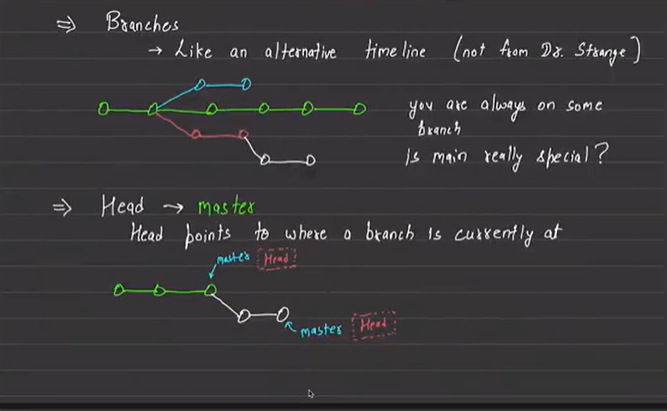 ⇒ Branches
→ Like an alternative timeline (not from Dr. Strange)
you are always on some
branch
Is main really special?
⇒ Head → master
Head points to where a branch is currently at
master Head
master Head